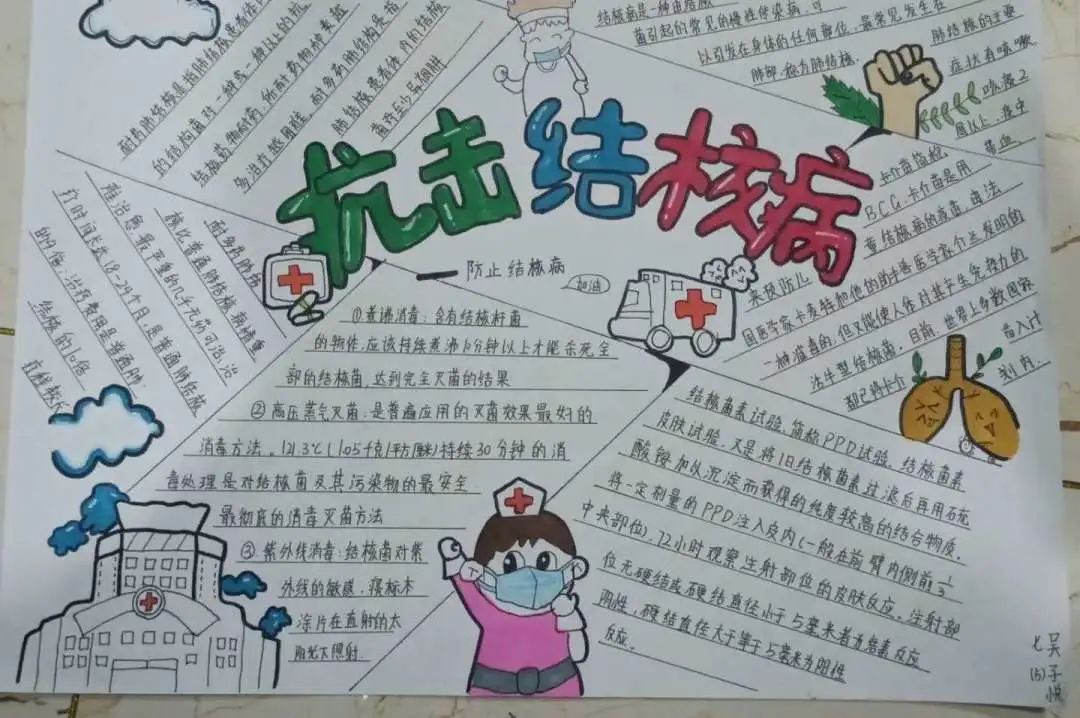 抗击结核病
防止结核病
加油
耐药肺结核是指肺结核患者体内
的结核菌对一种或一种以上的抗
结核药物耐药,所耐药物种类越
多治疗越困难,耐多药肺结核是指
肺结核患者体内的结核
菌对至少异烟肼
结核病是一种由结核
菌引起的常见的慢性传染病,可
以引发在身体的任何部位,最常见发生在
肺部,称为肺结核.
肺结核的主要
症状有咳嗽
咳痰2
周以上,痰中
带血
卡介苗简称
BCG.卡介苗是用
来预防儿
童结核病的疫苗,由法
国医学家卡麦特和他的助手兽医学家介兰发明的
一种准毒的,但又能使人体对其产生免疫力的
活牛型结核菌,目前,世界上多数国家
都已将卡介
苗入计
划内.
耐多药肺结
核比普通肺结核病情重,
难治愈,最严重的几乎无药可治,治
疗时间长达18-24个月,是普通肺结核
的4倍;治疗费用是普通肺
结核的10倍
①煮沸消毒:含有结核杆菌
的物体,应该持续煮沸10分钟以上才能杀死全
部的结核菌,达到完全灭菌的结果
②高压蒸气灭菌:是普遍应用的灭菌效果最好的
消毒方法。121.3℃(1.05千克/平方厘米)持续30分钟的消
毒处理是对结核菌及其污染物的最安全
最彻底的消毒灭菌方法
③紫外线消毒:结核菌对紫
外线的敏感,将标本
涂片在直射的太
阳光下照射.
结核菌素试验,简称PPD试验,结核菌素
皮肤试验,又是将旧结核菌素过滤后再用硫
酸铵加以沉淀而获得的纯度较高的结合物质.
将一定剂量的PPD注入皮内(一般在前臂内侧前1/3
中央部位),72小时观察注射部位的皮肤反应。注射部
位无硬结或硬结直径小于5毫米者为结素反应
阴性,硬结直径大于等于5毫米为阳性
反应.
七(5)
吴子悦